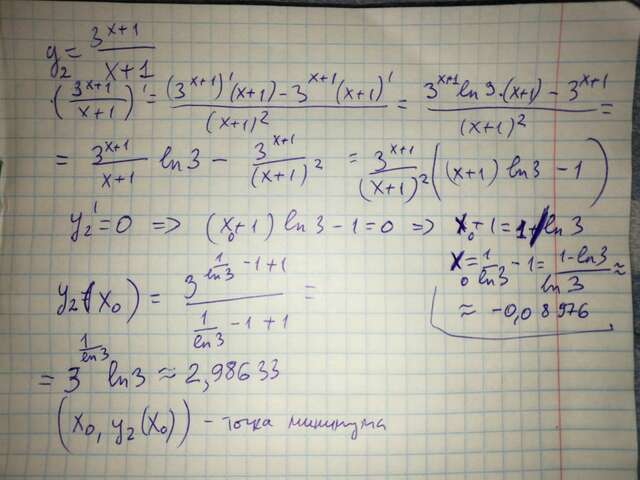 y₂ = 3^(x+1)/(x+1)
(3^(x+1)/(x+1))' = ((3^(x+1))'(x+1) - 3^(x+1)(x+1)')/(x+1)² = (3^(x+1) ln3·(x+1) - 3^(x+1))/(x+1)² =
= 3^(x+1)/(x+1) ln3 - 3^(x+1)/(x+1)² = 3^(x+1)/(x+1)² ((x+1) ln3 - 1)
y₂' = 0 => (x₀+1) ln3 - 1 = 0 => x₀+1 = 1/ln3
x₀ = 1/ln3 - 1 = (1-ln3)/ln3 ≈
≈ -0,08976
y₂(x₀) = 3^(1/ln3 - 1 + 1)/(1/ln3 - 1 + 1) =
= 3^(1/ln3) ln3 ≈ 2,98633
(x₀, y₂(x₀)) - точка минимума